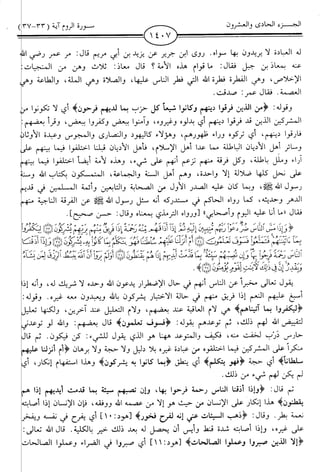 الجـــزء الحادى والعشرون
١٤٠٧
سـورة الروم آية (٣٣-٣٧)
له العبادة لا يريدون بها سواه. روى ابن جرير عن يزيد بن أبي مريم قال: مر عمر رضي الله
عنه بمعاذ بن جبل فقال: ما قوام هذه الأمة؟ قال معاذ: ثلاث وهن من المنجيات:
الإخلاص، وهي الفطرة فطرة الله التي فطر الناس عليها، والصلاة وهي الملة، والطاعة وهي
العصمة. فقال عمر: صدقت.
وقوله: ﴿من الذين فرقوا دينهم وكانوا شيعاً كل حزب بما لديهم فرحون﴾ أي لا تكونوا من
المشركين الذين قد فرقوا دينهم أي بدلوه وغيروه، وآمنوا ببعض وكفروا ببعض، وقرأ بعضهم:
فارقوا دينهم، أي تركوه وراء ظهورهم، وهؤلاء كاليهود والنصارى والمجوس وعبدة الأوثان
وسائر أهل الأديان الباطلة مما عدا أهل الإسلام، فأهل الأديان قبلنا اختلفوا فيما بينهم على
آراء وملل باطلة، وكل فرقة منهم تزعم أنهم على شيء، وهذه لأمة أيضاً اختلفوا فيما بينهم
على نحل كلها ضلالة إلا واحدة، وهم أهل السنة والجماعة، المتمسكون بكتاب الله وسنة
رسول الله ﷺ، وبما كان عليه الصدر الأول من الصحابة والتابعين وأئمة المسلمين في قديم
الدهر وحديثه، كما رواه الحاكم في مستدركه أنه سئل رسول الله ﷺ عن الفرقة الناجية منهم
فقال «ما أنا عليه اليوم وأصحابي» [ورواه الترمذي بمعناه وقال: حسن صحيح].
يقول تعالى مخبراً عن الناس أنهم في حال الإضطرار يدعون الله وحده لا شريك له، وأنه إذا
أسبغ عليهم النعم إذا فريق منهم في حالة الاختيار يشركون بالله ويعبدون معه غيره. وقوله:
﴿ليكفروا بما آتيناهم﴾ هي لام العاقبة عند بعضهم، ولام التعليل عند آخرين، ولكنها تعليل
لتقييض الله لهم ذلك، ثم توعدهم بقوله: ﴿فسوف تعلمون﴾ قال بعضهم: والله لو توعدني
حارس درب لخفت منه، فكيف والمتوعد ههنا هو الذي يقول للشيء: كن فيكون. ثم قال
منكراً على المشركين فيما اختلقوه من عبادة غيره بلا دليل ولا حجة ولا برهان ﴿أم أنزلنا عليهم
سلطاناً﴾ أي حجة ﴿فهو يتكلم﴾ أي ينطق ﴿بما كانوا به يشركون﴾ وهذا استفهام إنكار، أي
لم يكن لهم شيء من ذلك.
ثم قال: ﴿وإذا أذقنا الناس رحمة فرحوا بها، وإن تصبهم سيئة بما قدمت أيديهم إذا هم
يقنطون﴾ هذا إنكار على الإنسان من حيث هو إلا من عصمه الله ووفقه، فإن الإنسان إذا أصابته
نعمة بطر. وقال: ﴿ذهب السيئات عني إنه لفرح فخور﴾ [هود:١٠] أي يفرح في نفسه ويفخر
على غيره، وإذا أصابته شدة قنط وأيس أن يحصل له بعد ذلك خير بالكلية. قال الله تعالى:
﴿إلا الذين صبروا وعملوا الصالحات﴾ [هود:١١] أي صبروا في الضراء وعملوا الصالحات